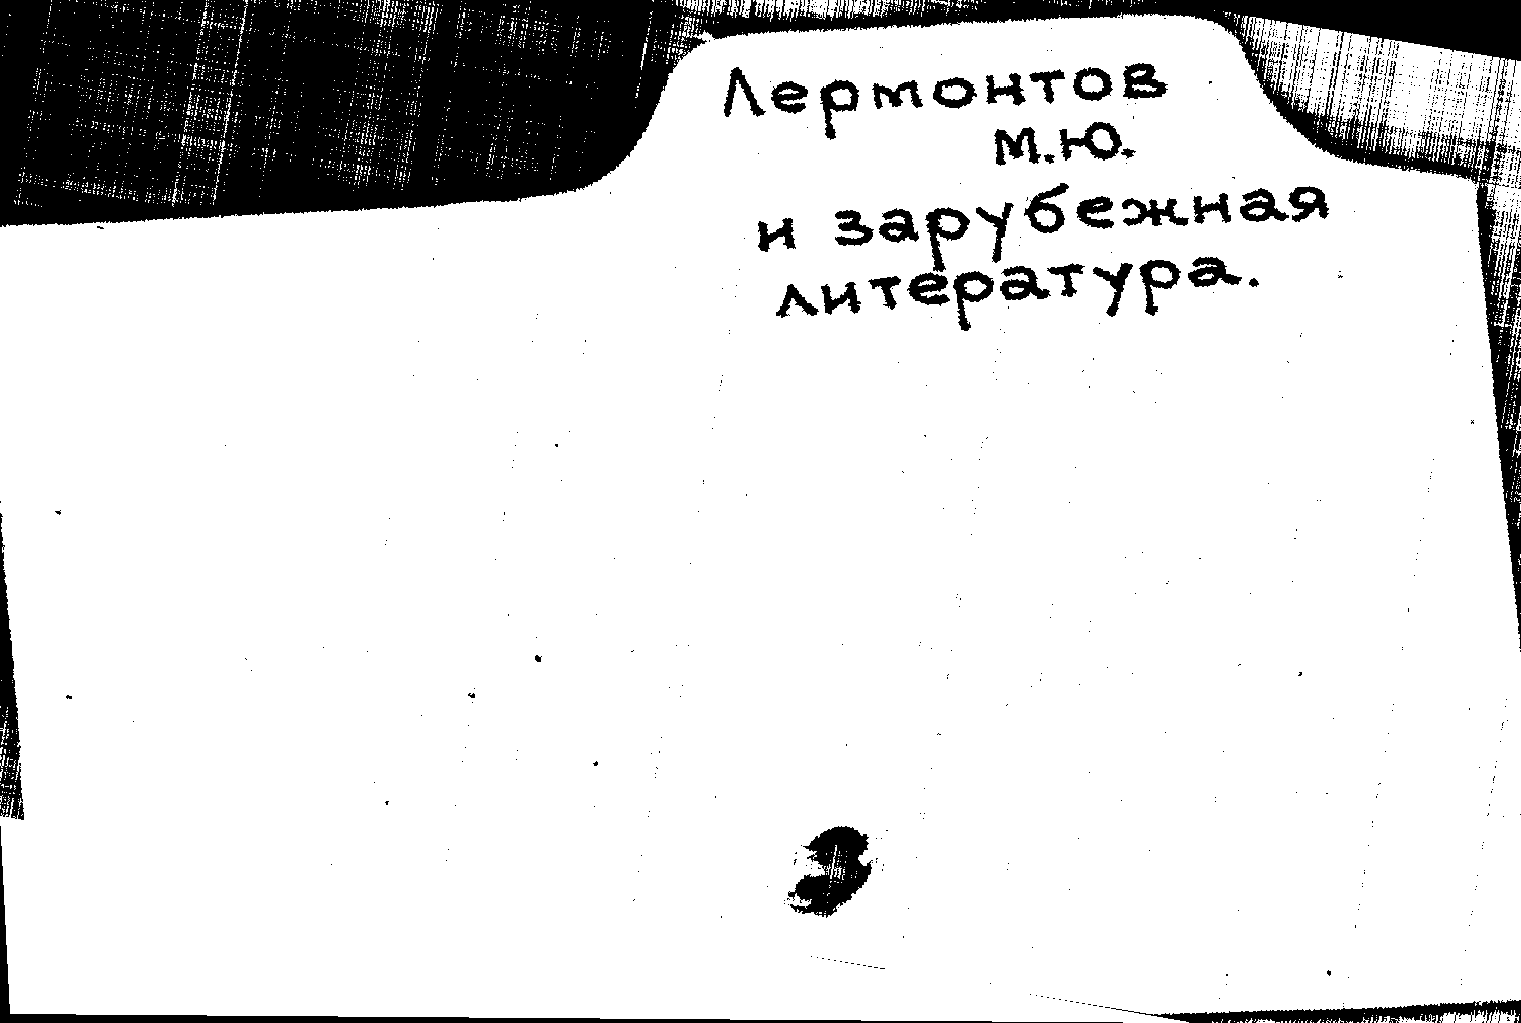 Лермонтов
М.Ю.
и зарубежная
литература.